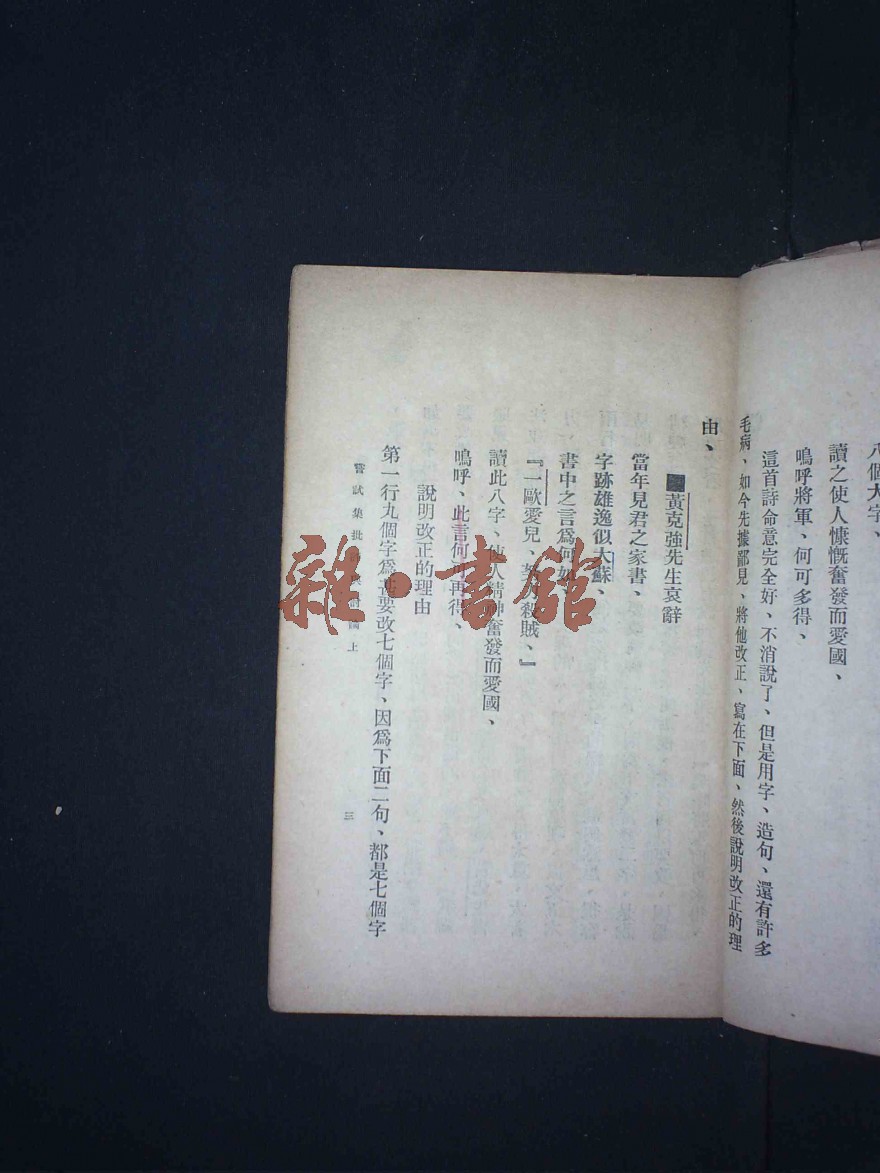 八個大字、
讀之使人慷慨奮發而愛國、
嗚呼將軍、何可多得、
這首詩命意完全好、不消說了、但是用字、造句、還有許多
毛病、如今先據鄙見、將他改正、寫在下面、然後說明改正的理
由、
黃克強先生哀辭
當年見君之家書、
字跡雄逸似大蘇、
書中之言爲何如
『一歐愛兒、努力殺賊、』
讀此八字、使人精神奮發而愛國、
嗚呼、此言何可再得、
說明改正的理由
第一行九個字爲甚要改七個字、因爲下面二句、都是七個字
嘗試集批 上
三
雜·書館